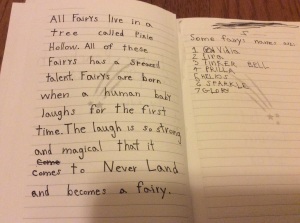 All Fairys live in a
tree called Pixie
Hollow. All of these
Fairys has a
talent. Fairys are born
when a human baby
laughs for the first
time. The laugh is so strong
and magical that it
comes to Never Land
and becomes a fairy.
Some fairys names are:
1 Vidia
2
3 TINKER BELL
4 PRILLA
5
6 SPARKLE
7